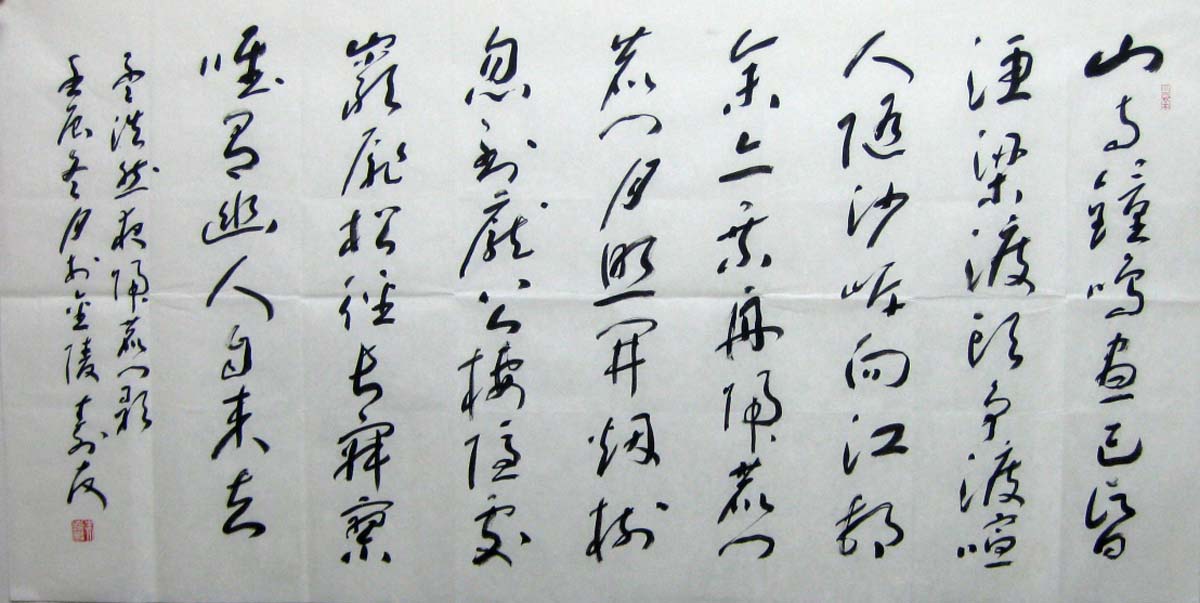 山寺鐘鳴晝已昏
漁梁渡頭争渡喧
人隨沙岸向江邨
余亦乘舟歸鹿門
鹿門月照開烟樹
忽到龐公棲隱處
巖扉松徑長寂寥
唯有幽人自來去
孟浩然夜歸鹿門歌
壬辰冬月於金陵 壽友